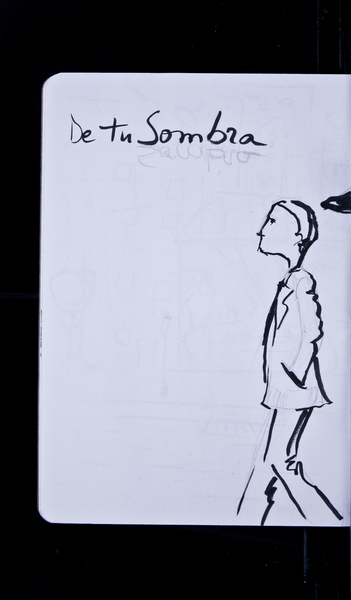 De tu Sombra